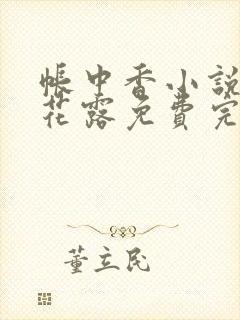 帳中香小說
花露免費完
董立民